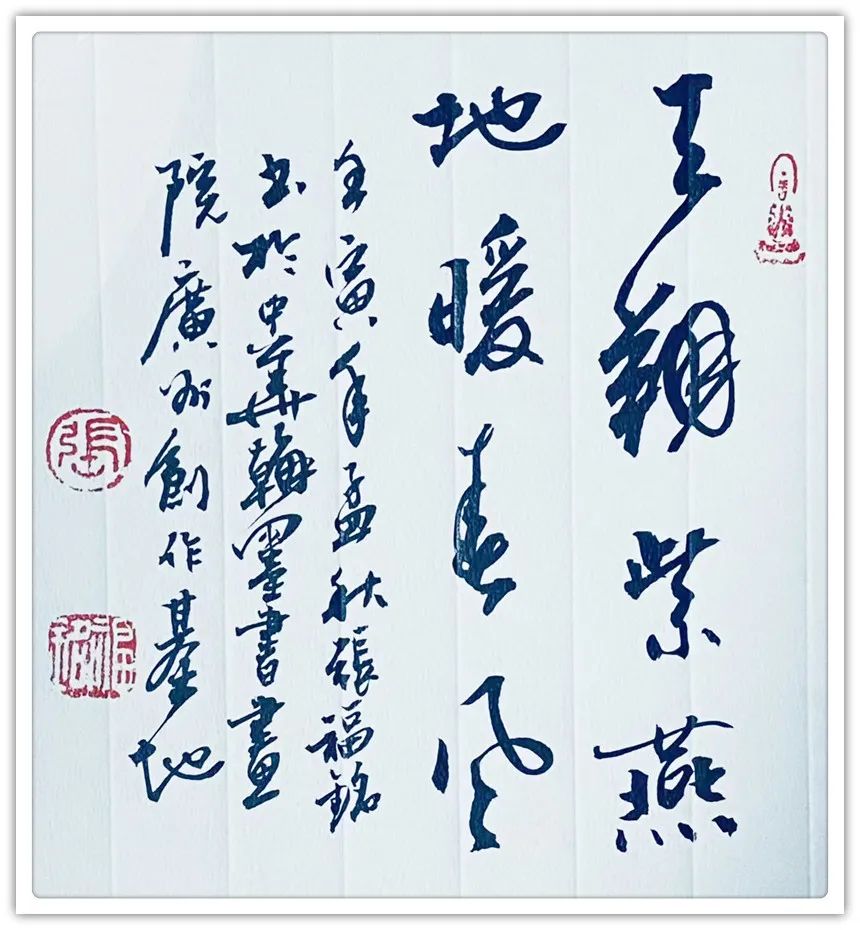 天翔紫燕
地暖春风
壬寅年孟秋張福銘
书於中華翰墨書畫
院廣州創作基地
張